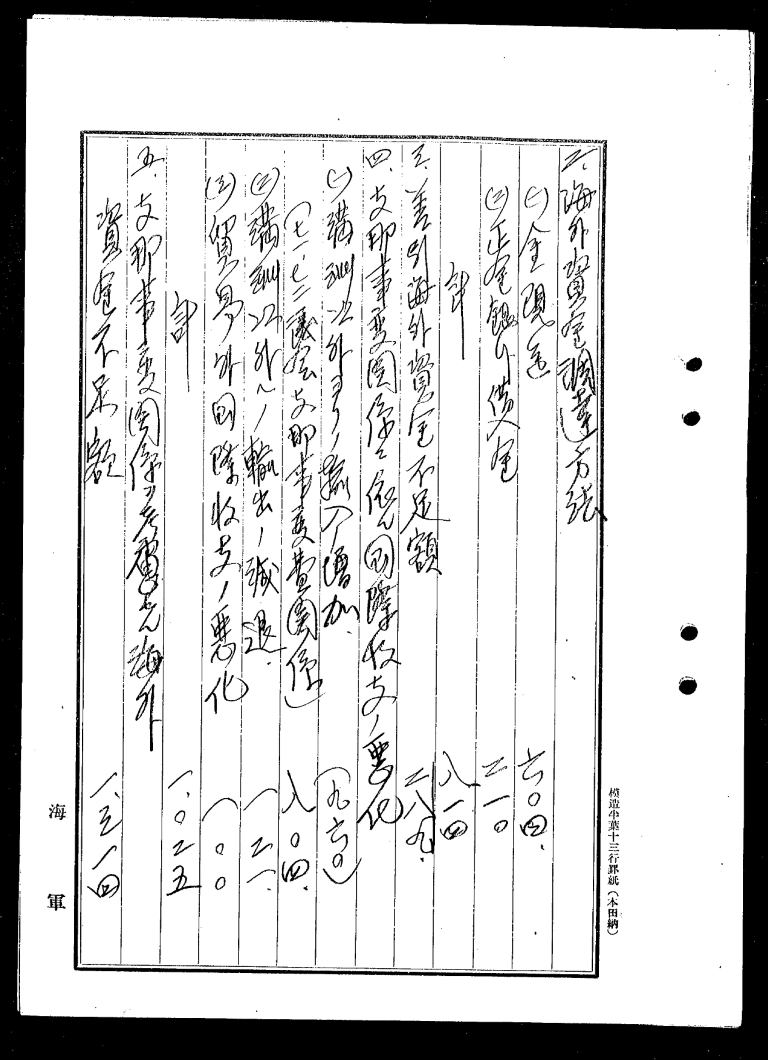 模造半葉十三行罫紙（本田納）
二、海外資金調達方法
(一)金現送 六〇四.
(二)正金銀行借入金 二一〇
計 八一四
三、差引海外資金不足額 二八九.
四、支那事変関係ニ依ル国際収支ノ悪化
(一)満洲以外ヨリノ輸入ノ増加. (九六〇)
(七一、七二議会支那事変費関係) 八〇四.
(二)満洲以外ヘノ輸出ノ減退. 一二一.
(三)貿易外国際収支ノ悪化 一〇〇
計 一、〇二五
五、支那事変関係ヲ考慮セル海外
資金不足額 一、三一四
海軍